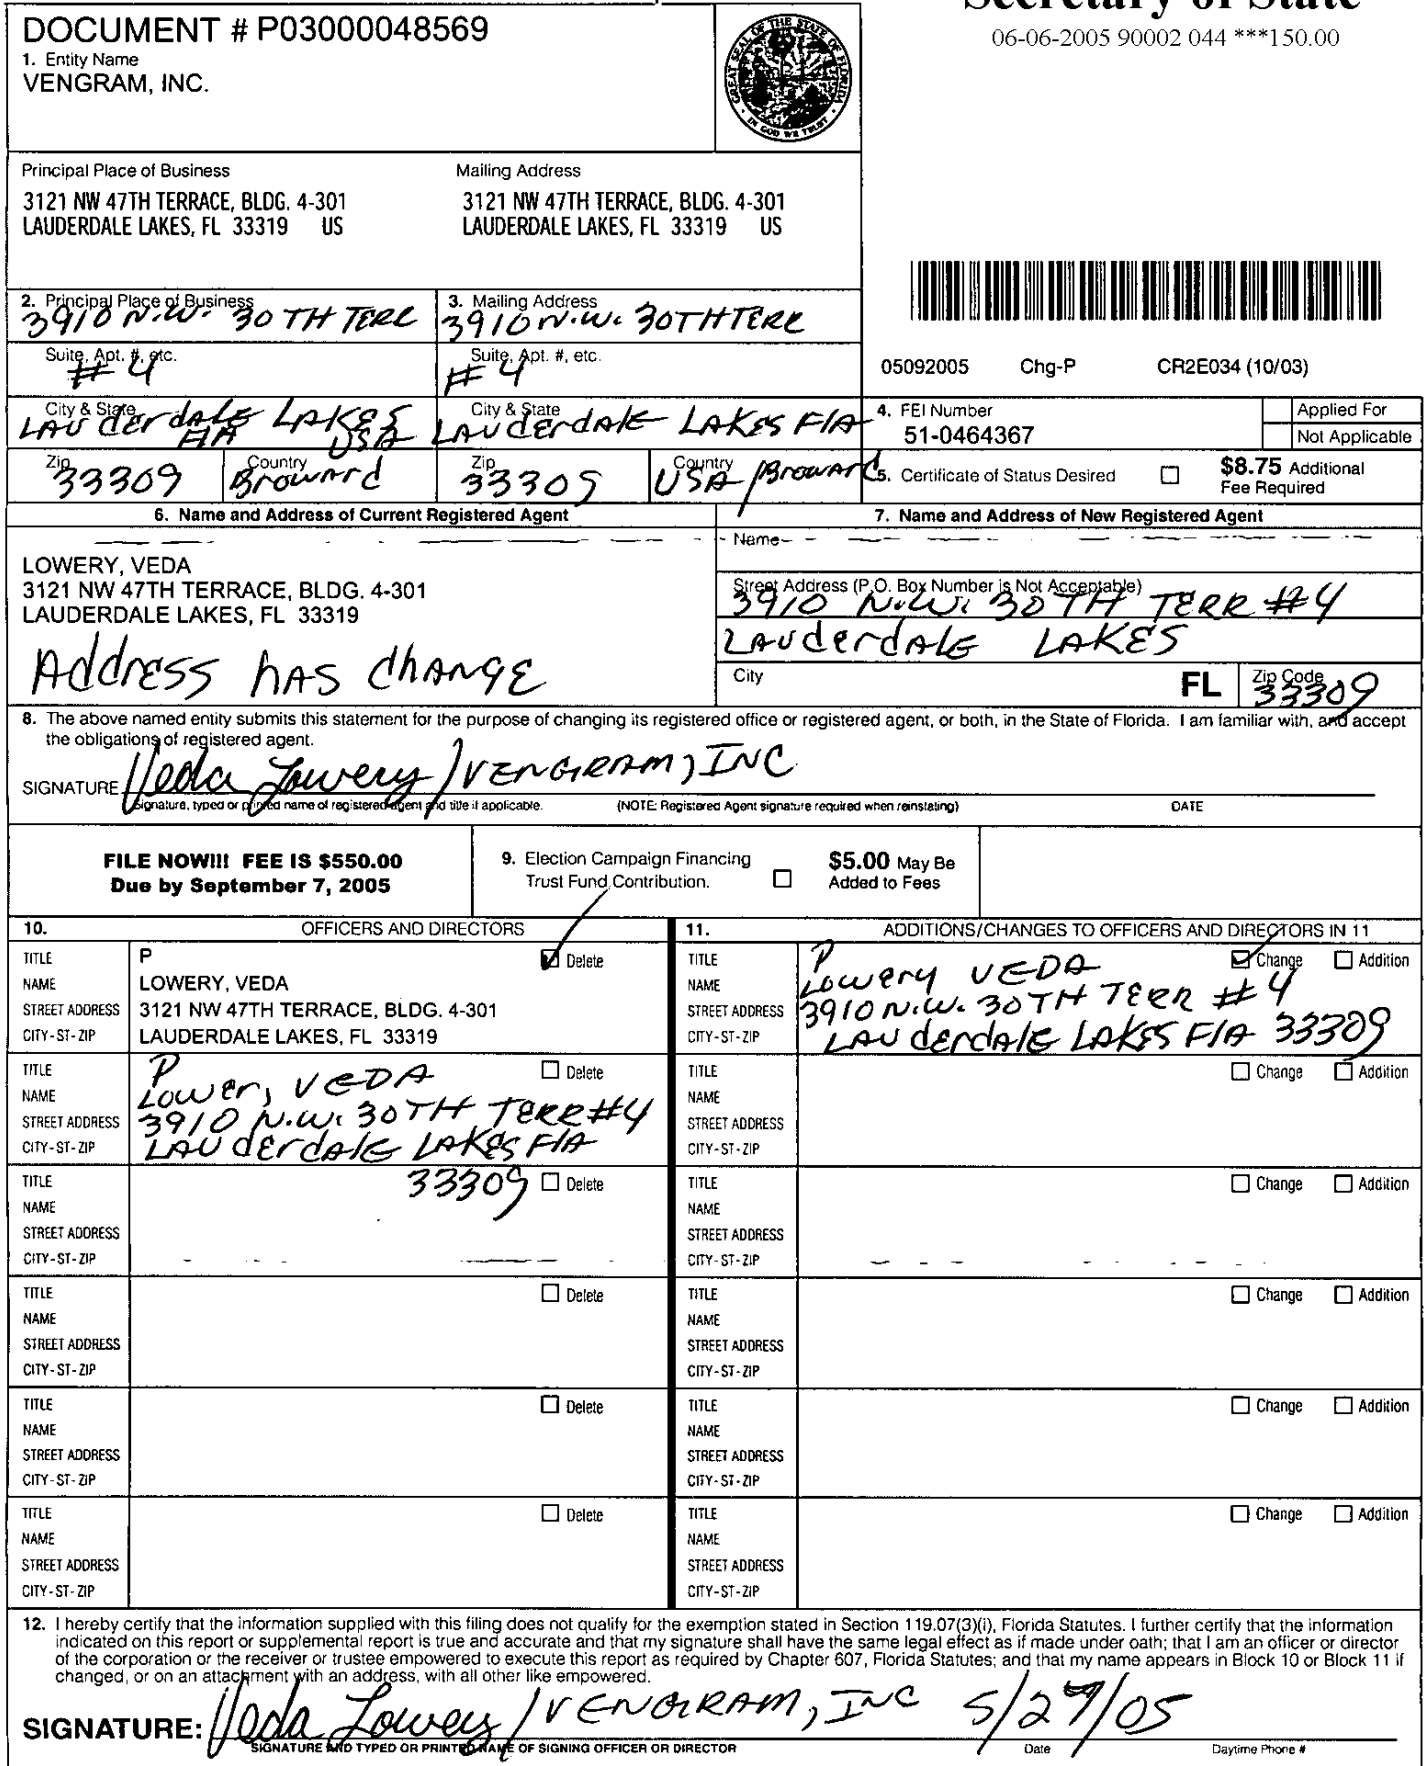 Secretary of State
06-06-2005 90002 044 ***150.00
DOCUMENT # P03000048569
1. Entity Name
VENGRAM, INC.
GREAT SEAL OF THE STATE OF FLORIDA
IN GOD WE TRUST
Principal Place of Business
3121 NW 47TH TERRACE, BLDG. 4-301
LAUDERDALE LAKES, FL 33319 US
Mailing Address
3121 NW 47TH TERRACE, BLDG. 4-301
LAUDERDALE LAKES, FL 33319 US
2. Principal Place of Business
3910 N.W. 30TH TERR
3. Mailing Address
3910 N.W. 30TH TERR
Suite, Apt. #, etc.
#4
Suite, Apt. #, etc.
#4
05092005 Chg-P CR2E034 (10/03)
City & State
LAUderdALE LAKES
FlA USA
City & State
LAUderdAlE LAKES FlA
4. FEI Number
51-0464367
Applied For
Not Applicable
Zip
33309
Country
Broward
Zip
33309
Country
USA/Broward
5. Certificate of Status Desired
$8.75 Additional
Fee Required
6. Name and Address of Current Registered Agent
LOWERY, VEDA
3121 NW 47TH TERRACE, BLDG. 4-301
LAUDERDALE LAKES, FL 33319
Address hAS chANGE
7. Name and Address of New Registered Agent
Name
Street Address (P.O. Box Number is Not Acceptable)
3910 N.W. 30TH TERR #4
LAUderdAlE LAKES
City
FL
Zip Code
33309
8. The above named entity submits this statement for the purpose of changing its registered office or registered agent, or both, in the State of Florida. I am familiar with, and accept
the obligations of registered agent.
SIGNATURE Veda Lowery/VENGRAM, INC
Signature, typed or printed name of registered agent and title if applicable.
(NOTE: Registered Agent signature required when reinstating)
DATE
FILE NOW!!! FEE IS $550.00
Due by September 7, 2005
9. Election Campaign Financing
Trust Fund Contribution.
$5.00 May Be
Added to Fees
10. OFFICERS AND DIRECTORS
11. ADDITIONS/CHANGES TO OFFICERS AND DIRECTORS IN 11
TITLE P Delete
NAME LOWERY, VEDA
STREET ADDRESS 3121 NW 47TH TERRACE, BLDG. 4-301
CITY-ST-ZIP LAUDERDALE LAKES, FL 33319
TITLE P Change Addition
NAME Lowery VEDA
STREET ADDRESS 3910 N.W. 30TH TERR #4
CITY-ST-ZIP LAUderdAlE LAKES FlA 33309
TITLE P Delete
NAME Lower, VEDA
STREET ADDRESS 3910 N.W. 30TH TERR #4
CITY-ST-ZIP LAUderdAlE LAKES FlA
33309
TITLE Change Addition
NAME
STREET ADDRESS
CITY-ST-ZIP
TITLE Delete
NAME
STREET ADDRESS
CITY-ST-ZIP
TITLE Change Addition
NAME
STREET ADDRESS
CITY-ST-ZIP
TITLE Delete
NAME
STREET ADDRESS
CITY-ST-ZIP
TITLE Change Addition
NAME
STREET ADDRESS
CITY-ST-ZIP
TITLE Delete
NAME
STREET ADDRESS
CITY-ST-ZIP
TITLE Change Addition
NAME
STREET ADDRESS
CITY-ST-ZIP
TITLE Delete
NAME
STREET ADDRESS
CITY-ST-ZIP
TITLE Change Addition
NAME
STREET ADDRESS
CITY-ST-ZIP
12. I hereby certify that the information supplied with this filing does not qualify for the exemption stated in Section 119.07(3)(i), Florida Statutes. I further certify that the information
indicated on this report or supplemental report is true and accurate and that my signature shall have the same legal effect as if made under oath; that I am an officer or director
of the corporation or the receiver or trustee empowered to execute this report as required by Chapter 607, Florida Statutes; and that my name appears in Block 10 or Block 11 if
changed, or on an attachment with an address, with all other like empowered.
SIGNATURE: Veda Lowery/VENGRAM, INC 5/27/05
SIGNATURE AND TYPED OR PRINTED NAME OF SIGNING OFFICER OR DIRECTOR
Date
Daytime Phone #